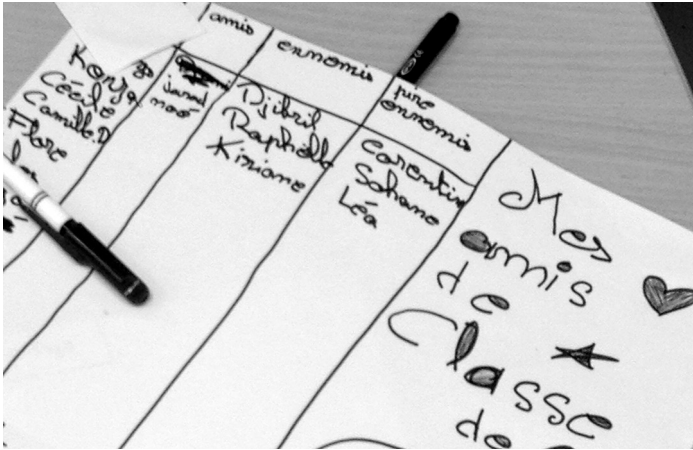 amis
ennemis
pire
ennemis
Cécile
Camille.D
Flore
jared
noé
Djibril
Raphëlle
Kiriane
Corentin
Sohane
Léa
Mes
amis
de
Classe
de